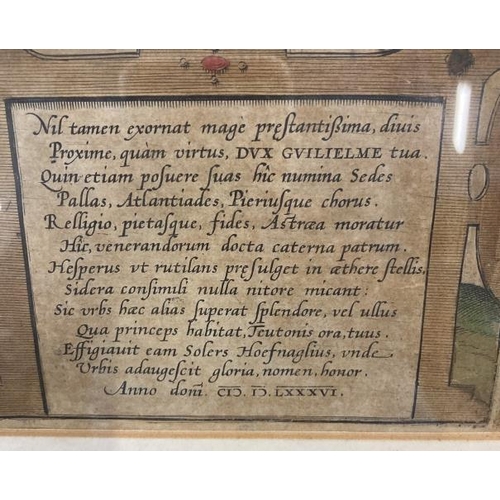 Nil tamen exornat mage prestantißima, diuis
Proxime, quàm virtus, DVX GVILIELME tua.
Quin etiam posuere suas hîc numina Sedes
Pallas, Atlantiades, Pieriusque chorus.
Relligio, pietasque, fides, Astræa moratur
Hîc, venerandorum docta caterna patrum.
Hesperus vt rutilans presulget in æthere stellis,
Sidera consimili nulla nitore micant:
Sic vrbs hæc alias superat splendore, vel ullus
Qua princeps habitat, Teutonis ora, tuus.
Effigiauit eam Solers Hoefnaglius, vnde
Vrbis adaugescit gloria, nomen, honor.
Anno doni̅. CIↃ. IↃ. LXXXVI.